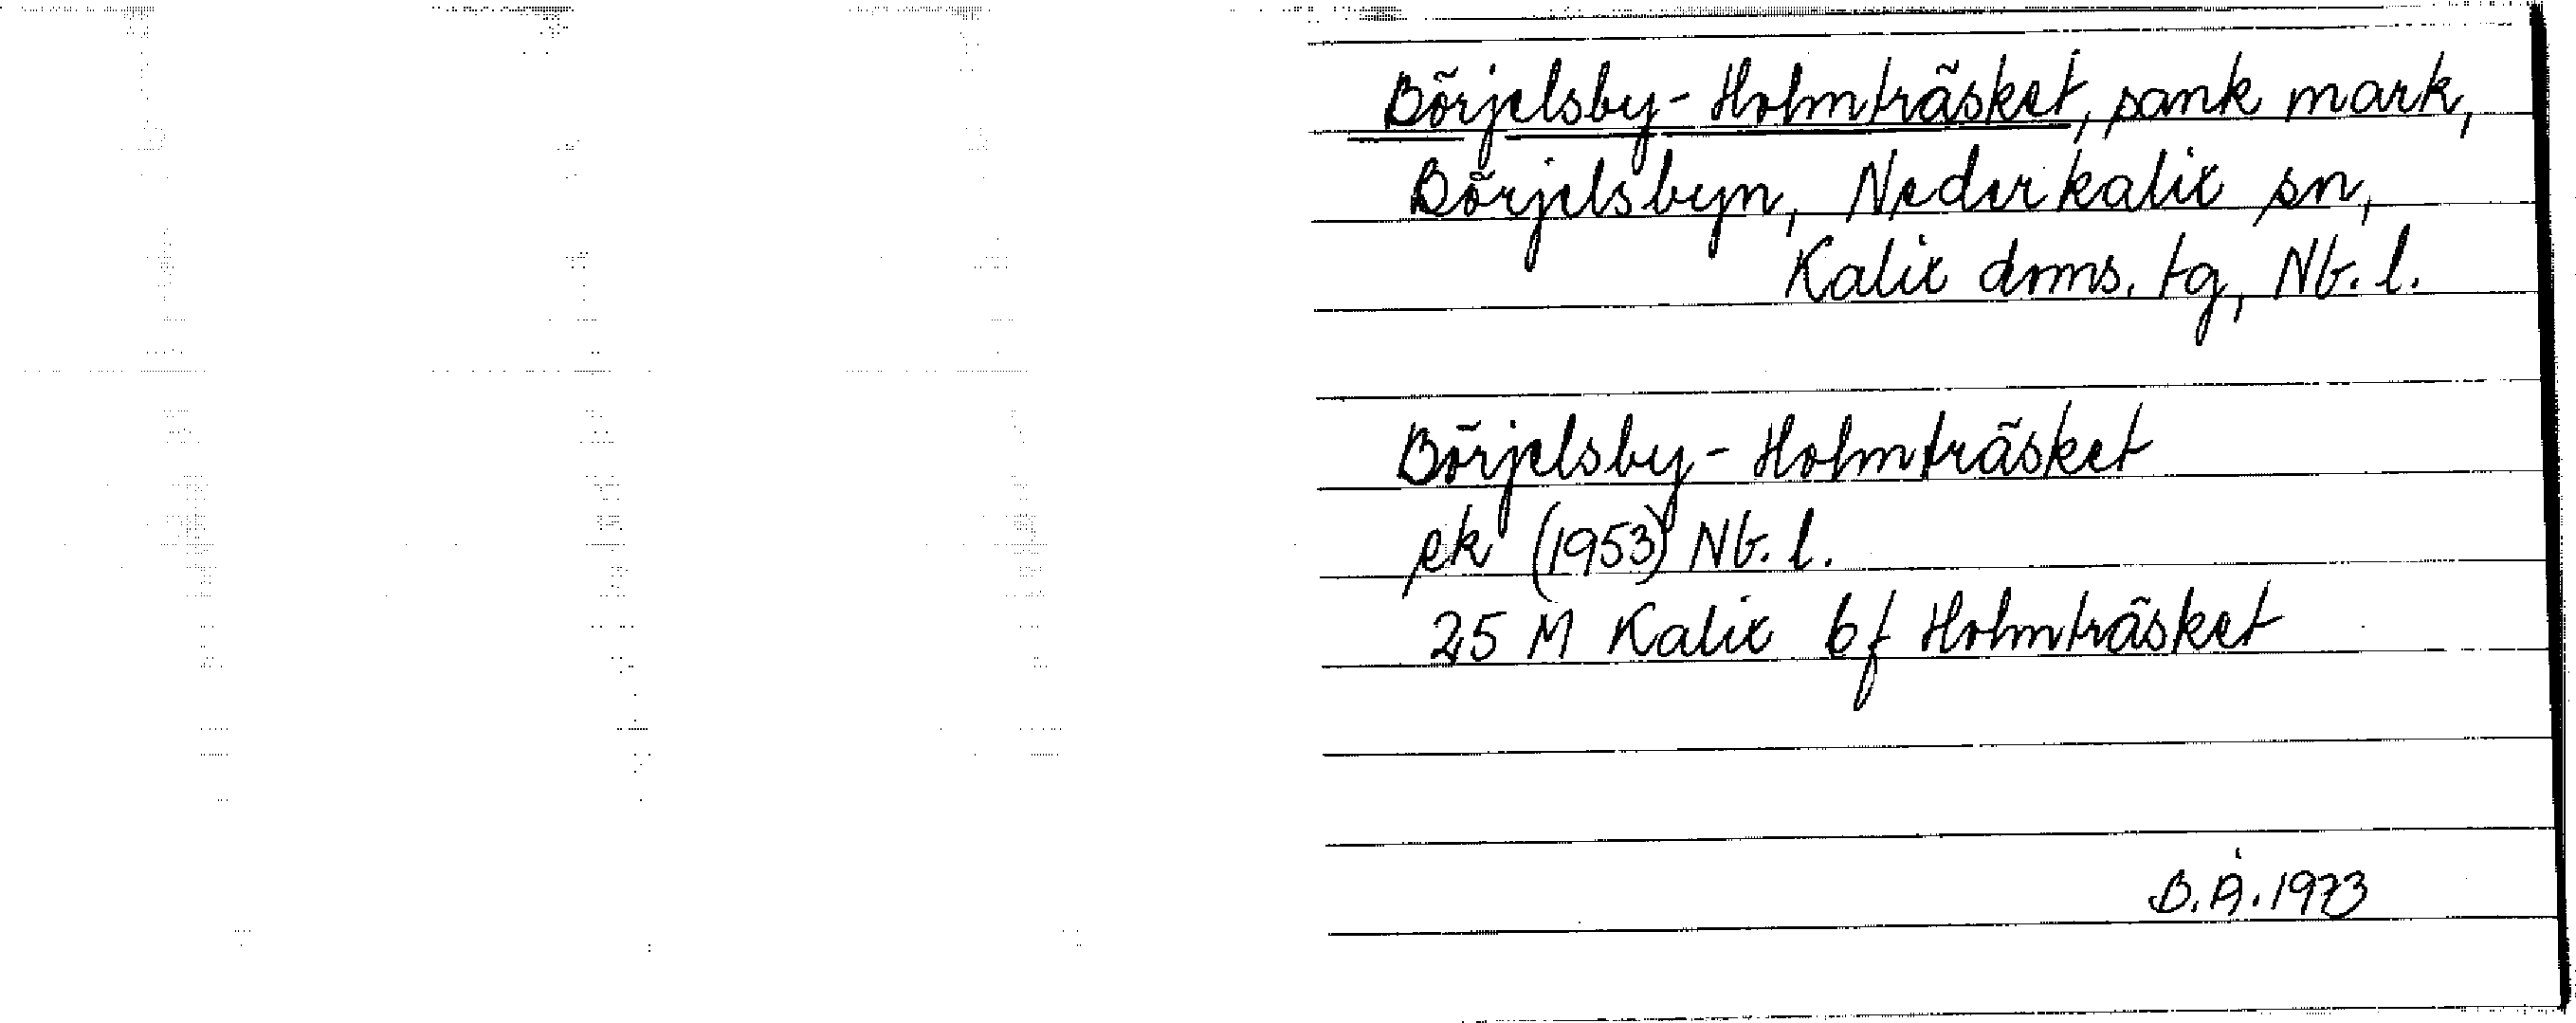 Börjelsby-Holmträsket, sank mark,
Börjelsbyn, Nederkalix sn,
Kalix doms. tg, Nb. l.
Börjelsby-Holmträsket
ek (1953) Nb. l.
25 M Kalix bf Holmträsket
B.Å. 1973